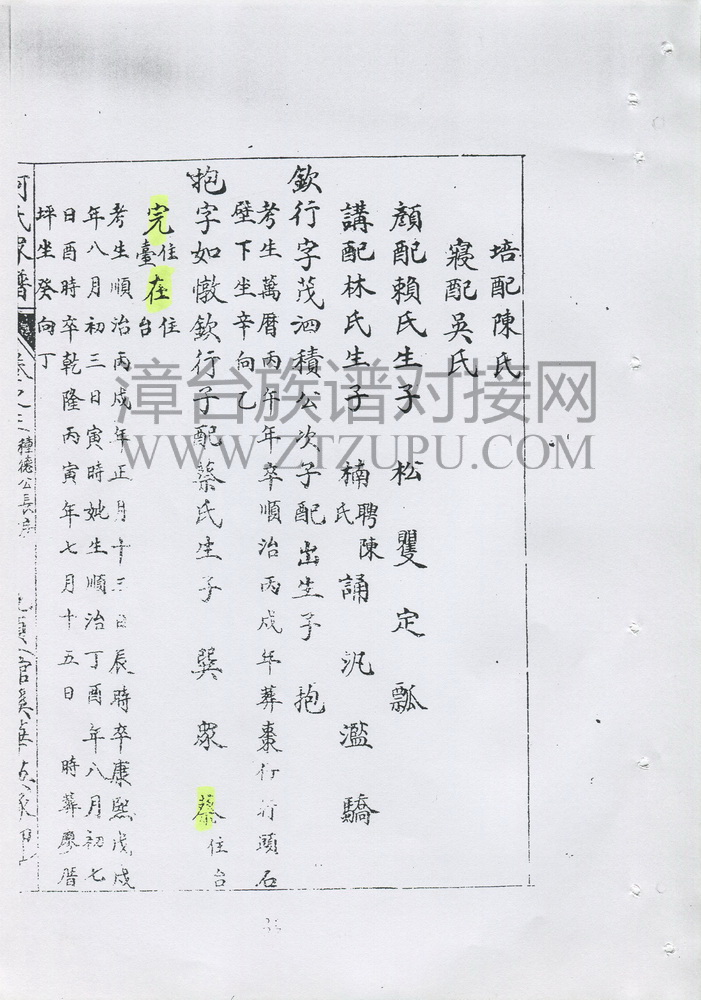 培配陳氏
寢配吳氏
顏配賴氏生子 松 矍 定 瓢
講配林氏生子 楠 聘陳氏 誦 汎 濫 驕
欽行字茂泗積公次子配出生子 抱
考生萬曆丙午年卒順治丙戍年葬棗行行頭石
壁下坐辛向乙
抱字如憞欽行子配蔡氏生子 巽 眾 蔡 住台
完 住臺 在 住台
考生順治丙戍年正月十三日辰時卒康熙戊戍
年八月初三日寅時妣生順治丁酉年八月初七
日酉時卒乾隆丙寅年七月十五日 時葬廖厝
坪坐癸向丁
氏家譜 卷之三 種德公長房
漳台族谱对接网
WWW.ZTZUPU.COM